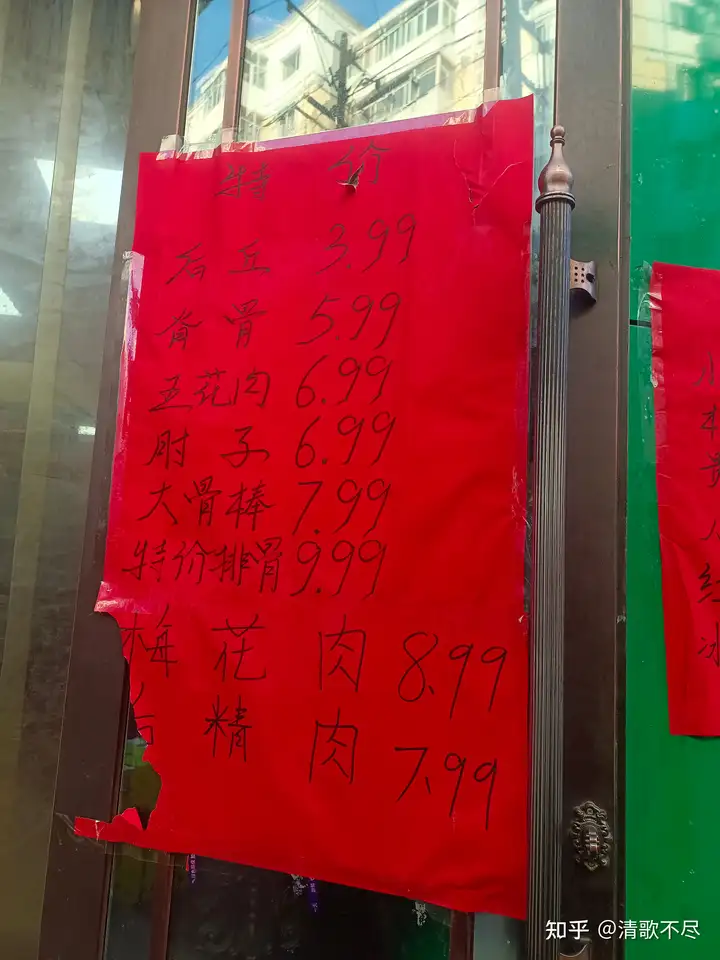 特价
后丘 3.99
脊骨 5.99
五花肉 6.99
肘子 6.99
大骨棒 7.99
特价排骨 9.99
梅花肉 8.99
精肉 7.99
知乎 @清歌不尽